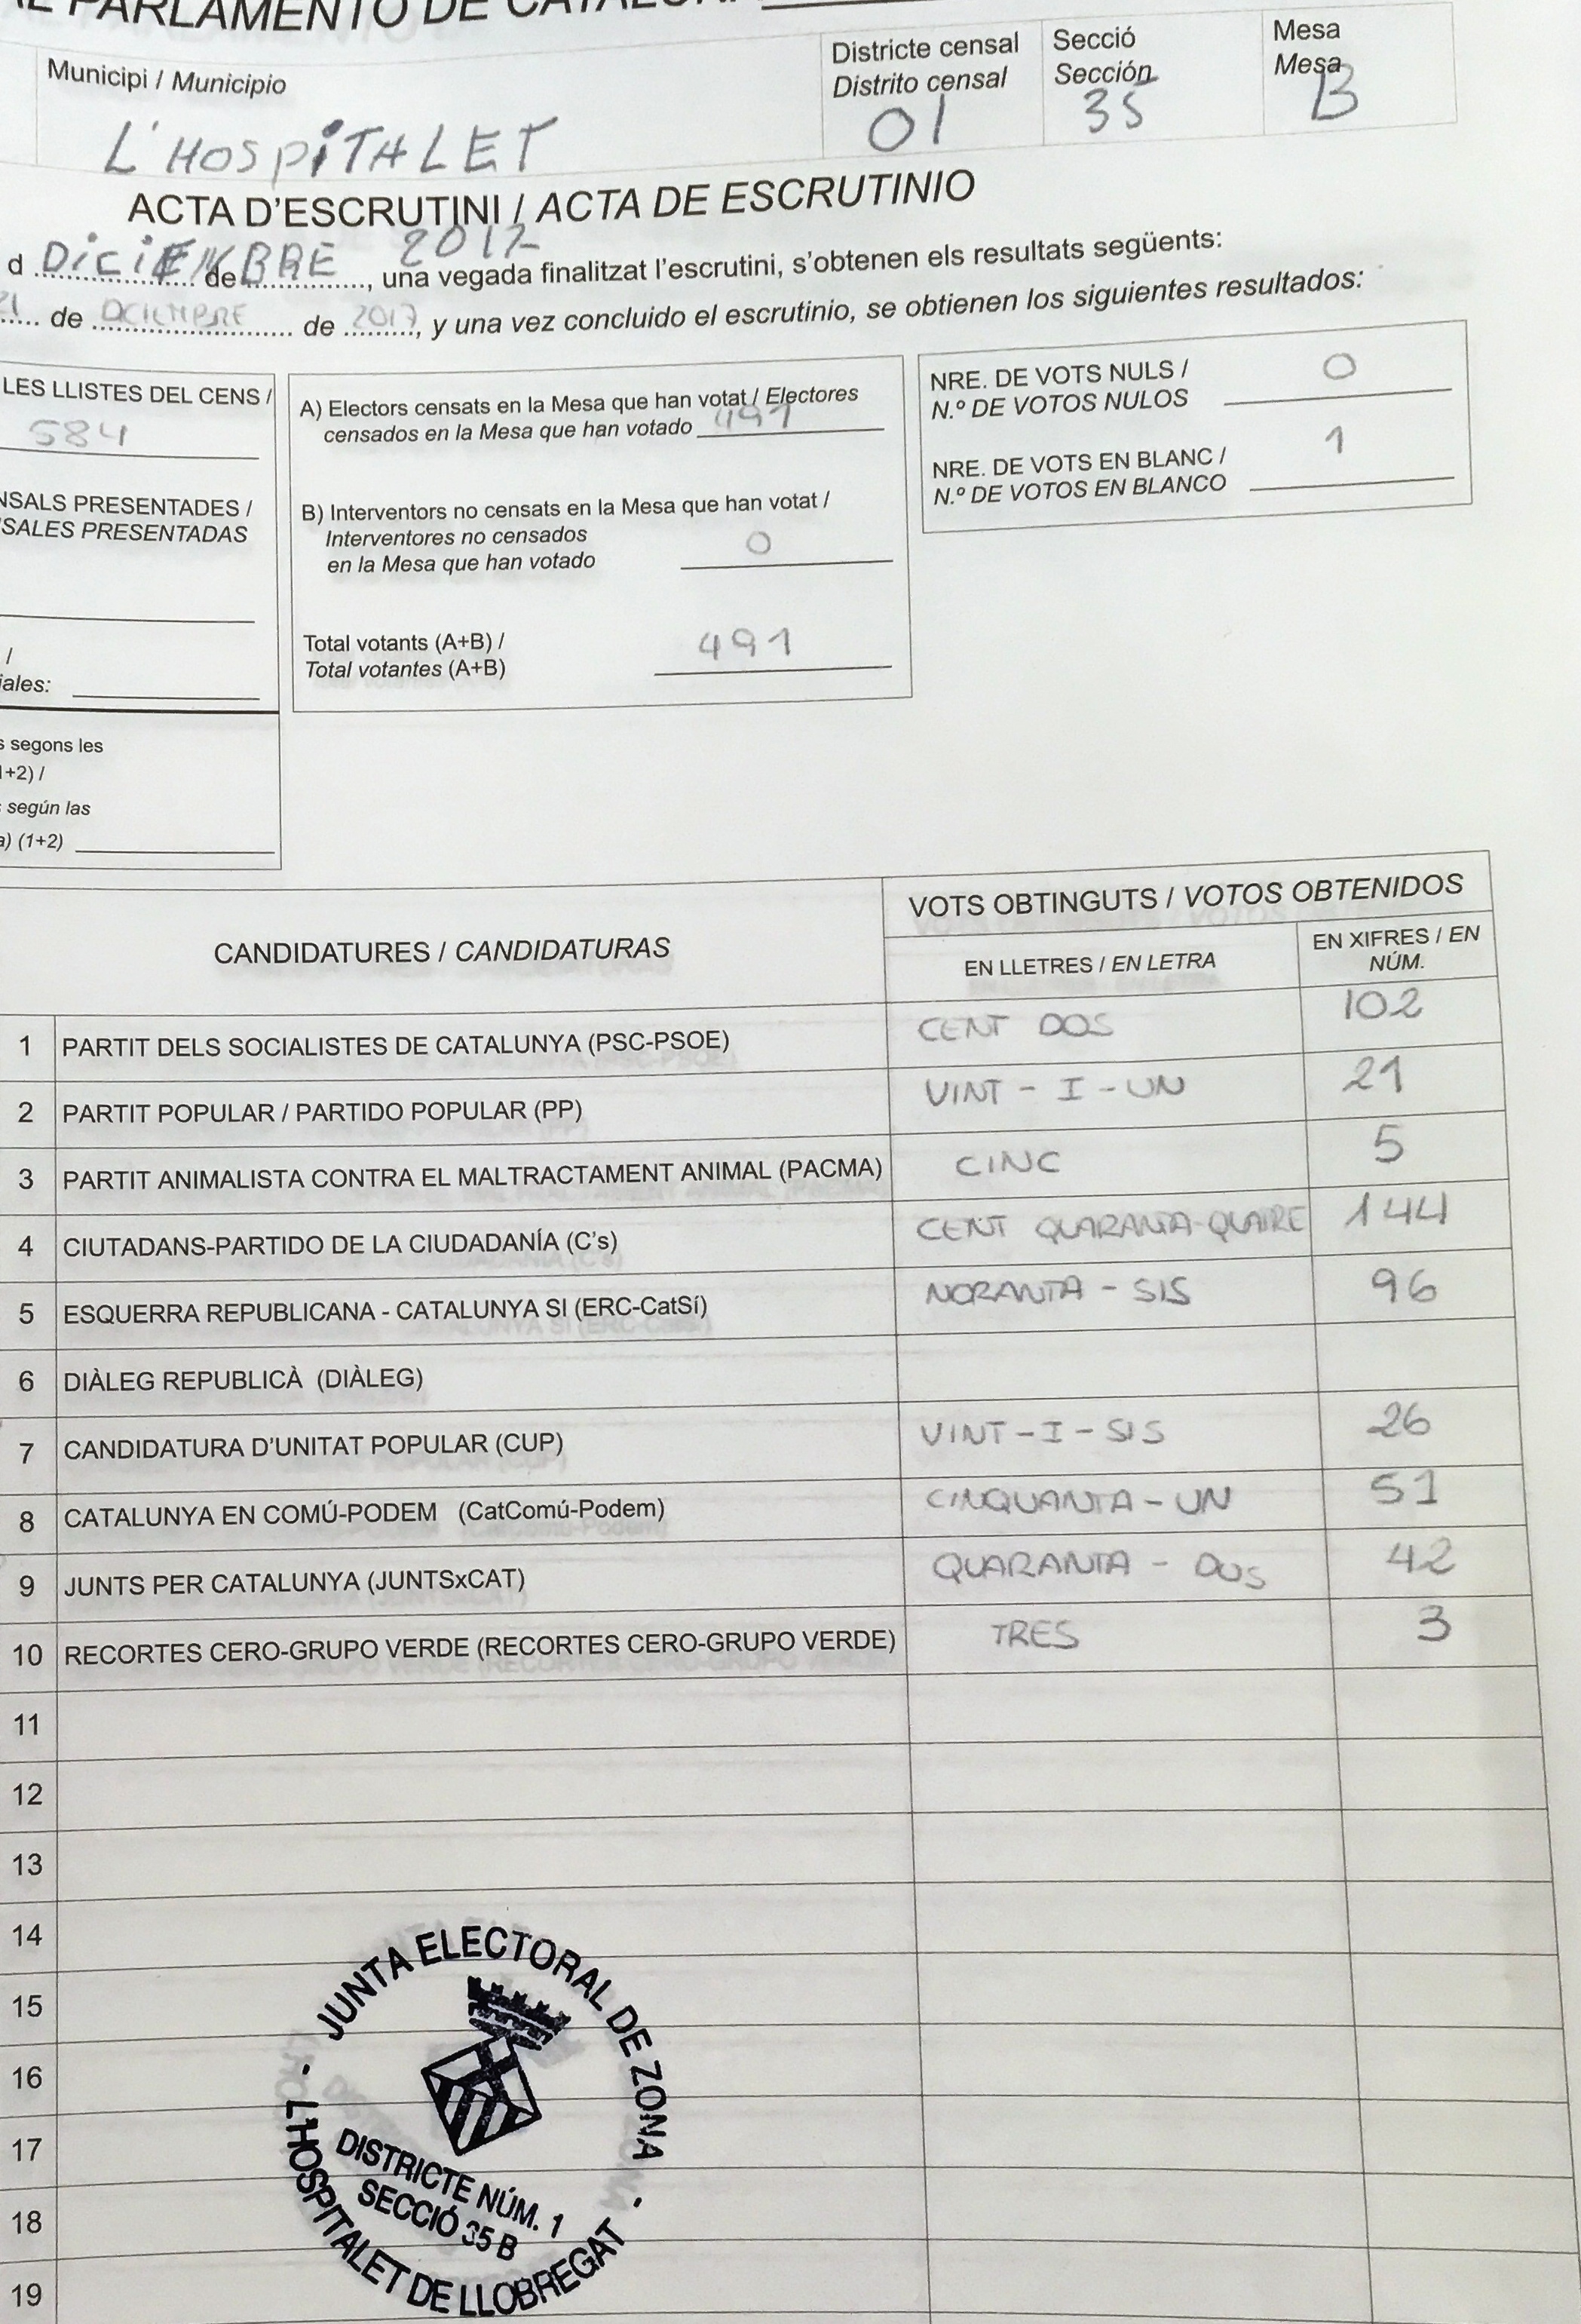 PARLAMENTO DE
Municipi / Municipio
L'HOSPITALET
Districte censal
Distrito censal
01
Secció
Sección
35
Mesa
Mesa
B
ACTA D'ESCRUTINI / ACTA DE ESCRUTINIO
d DiCiEMBRE de 2017, una vegada finalitzat l'escrutini, s'obtenen els resultats següents:
21 de DCIEMBRE de 2017, y una vez concluido el escrutinio, se obtienen los siguientes resultados:
LES LLISTES DEL CENS /
584
NSALS PRESENTADES /
SALES PRESENTADAS
/
iales:
s segons les
1+2) /
s según las
a) (1+2)
A) Electors censats en la Mesa que han votat / Electores
censados en la Mesa que han votado 491
B) Interventors no censats en la Mesa que han votat /
Interventores no censados
en la Mesa que han votado 0
Total votants (A+B) /
Total votantes (A+B) 491
NRE. DE VOTS NULS /
N.º DE VOTOS NULOS 0
NRE. DE VOTS EN BLANC /
N.º DE VOTOS EN BLANCO 1
CANDIDATURES / CANDIDATURAS
VOTS OBTINGUTS / VOTOS OBTENIDOS
EN LLETRES / EN LETRA
EN XIFRES / EN
NÚM.
1 PARTIT DELS SOCIALISTES DE CATALUNYA (PSC-PSOE) CENT DOS 102
2 PARTIT POPULAR / PARTIDO POPULAR (PP) VINT - I - UN 21
3 PARTIT ANIMALISTA CONTRA EL MALTRACTAMENT ANIMAL (PACMA) CINC 5
4 CIUTADANS-PARTIDO DE LA CIUDADANÍA (C's) CENT QUARANTA-QUATRE 144
5 ESQUERRA REPUBLICANA - CATALUNYA SI (ERC-CatSí) NORANTA - SIS 96
6 DIÀLEG REPUBLICÀ (DIÀLEG)
7 CANDIDATURA D'UNITAT POPULAR (CUP) VINT - I - SIS 26
8 CATALUNYA EN COMÚ-PODEM (CatComú-Podem) CINQUANTA - UN 51
9 JUNTS PER CATALUNYA (JUNTSxCAT) QUARANTA - DOS 42
10 RECORTES CERO-GRUPO VERDE (RECORTES CERO-GRUPO VERDE) TRES 3
11
12
13
14
15
16
17
18
19
JUNTA ELECTORAL DE ZONA
DISTRICTE NÚM. 1
SECCIÓ 35 B
L'HOSPITALET DE LLOBREGAT